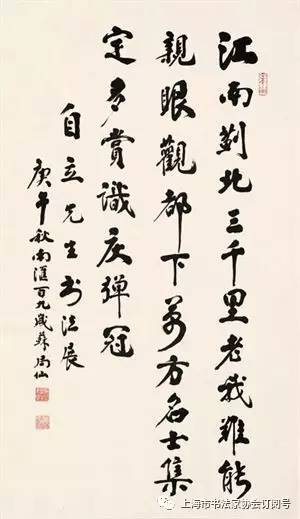 江南蓟北三千里老我难能
親眼觀都下萬方名士集
定多賞識庆彈冠
自立先生书法展
庚午秋南匯百九歲蘇局仙
上海市书法家协会订阅号